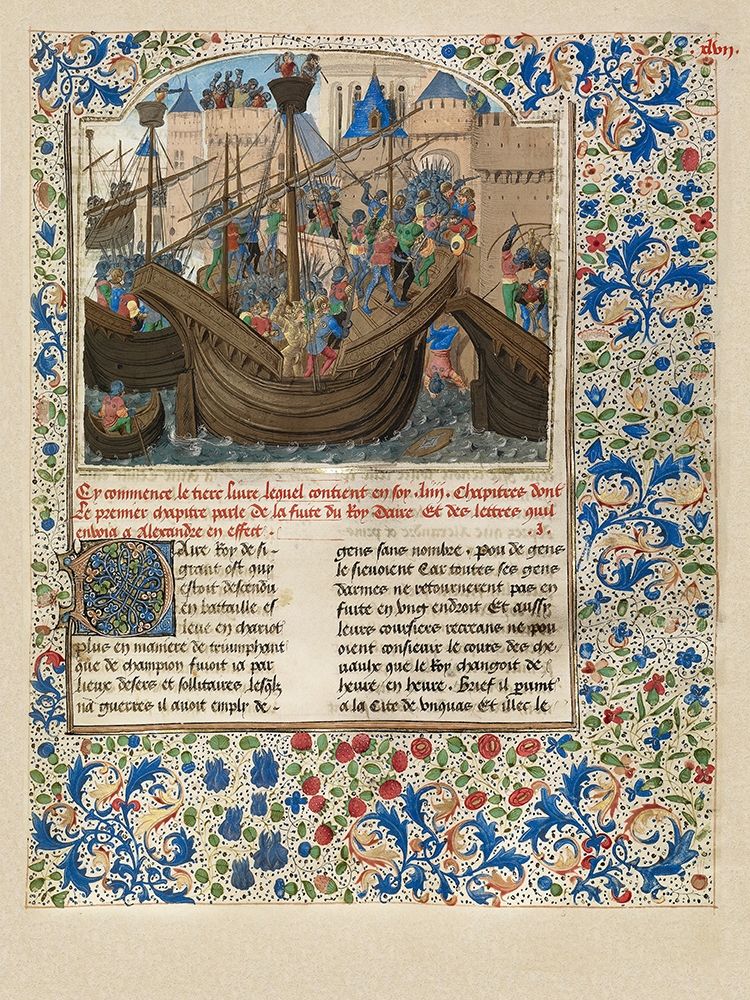 xlvij.
Cy commence le tiers livre lequel contient en soy .iiij. Chapitres dont
Le premier chapitre parle de la fuite du Roy daire Et des lettres quil
envoia a Alexandre en effect. .J.
Daire Roy de si
grant ost quy
estoit descendu
en bataille es
leue en chariot
plus en maniere de triumphant
que de champion fuioit ia par
lieux desers et sollitaires lesq̃lz
na guerres il avoit emply de
gens sans nombre . pou de gens
le sieuoient Car toutes ses gens
darmes ne retournerent pas en
fuite en vng endroit . Et aussy
leurs coursiers recreans ne pou
oient consieuir le cours des che
uaulx que le Roy changoit de
heure en heure . Brief il pvint
a la Cite de vnquas Et illec le